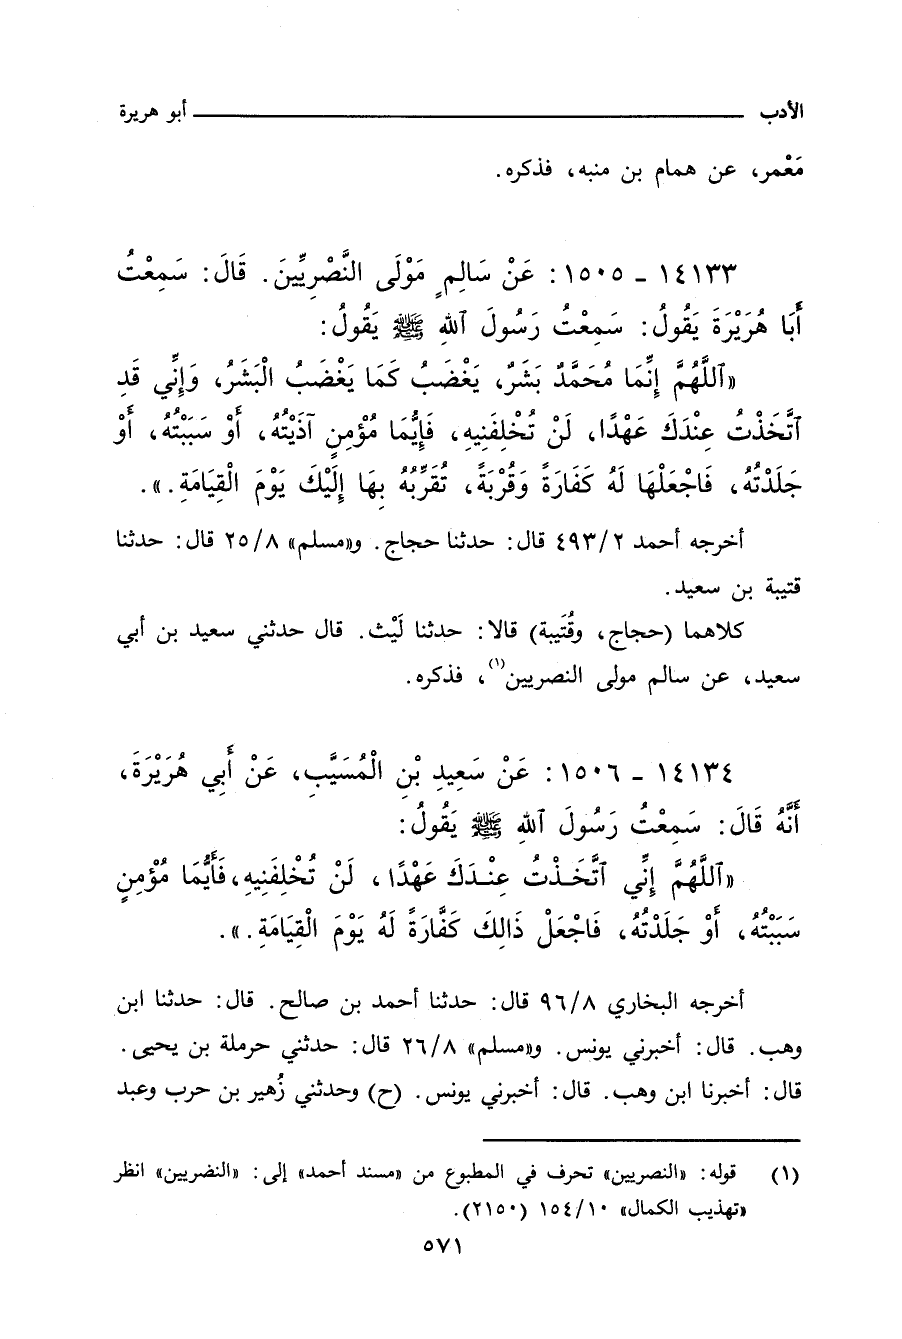 الأدب ــــــــــــــــ أبو هريرة
مَعْمر، عن همام بن منبه، فذكره.
١٤١٣٣ - ١٥٠٥: عَنْ سَالِمٍ مَوْلَى النَّصْرِيِّينَ. قَالَ: سَمِعْتُ
أَبَا هُرَيْرَةَ يَقُولُ: سَمِعْتُ رَسُولَ ٱللهِ ﷺ يَقُولُ:
«ٱللَّهُمَّ إِنَّمَا مُحَمَّدٌ بَشَرٌ، يَغْضَبُ كَمَا يَغْضَبُ الْبَشَرُ، وَإِنِّي قَدِ
ٱتَّخَذْتُ عِنْدَكَ عَهْدًا، لَنْ تُخْلِفَنِيهِ، فَإِيُّمَا مُؤْمِنٍ آذَيْتُهُ، أَوْ سَبَبْتُهُ، أَوْ
جَلَدْتُهُ، فَاجْعَلْهَا لَهُ كَفَارَةً وَقُرْبَةً، تُقَرِّبُهُ بِهَا إِلَيْكَ يَوْمَ الْقِيَامَةِ.».
أخرجه أحمد ٤٩٣/٢ قال: حدثنا حجاج. و«مسلم» ٢٥/٨ قال: حدثنا
قتيبة بن سعيد.
كلاهما (حجاج، وقُتَيبة) قالا: حدثنا لَيْث. قال حدثني سعيد بن أبي
سعيد، عن سالم مولى النصريين(١)، فذكره.
١٤١٣٤ - ١٥٠٦: عَنْ سَعِيدِ بْنِ الْمُسَيَّبِ، عَنْ أَبِي هُرَيْرَةَ،
أَنَّهُ قَالَ: سَمِعْتُ رَسُولَ ٱللهِ ﷺ يَقُولُ:
«ٱللَّهُمَّ إِنِّي ٱتَّخَذْتُ عِنْدَكَ عَهْدًا، لَنْ تُخْلِفَنِيهِ، فَأَيُّمَا مُؤْمِنٍ
سَبَبْتُهُ، أَوْ جَلَدْتُهُ، فَاجْعَلْ ذَالِكَ كَفَّارَةً لَهُ يَوْمَ الْقِيَامَةِ.».
أخرجه البخاري ٩٦/٨ قال: حدثنا أحمد بن صالح. قال: حدثنا ابن
وهب. قال: أخبرني يونس. و«مسلم» ٢٦/٨ قال: حدثني حرملة بن يحيى.
قال: أخبرنا ابن وهب. قال: أخبرني يونس. (ح) وحدثني زُهير بن حرب وعبد
(١) قوله: «النصريين» تحرف في المطبوع من «مسند أحمد» إلى: «النضريين» انظر
«تهذيب الكمال» ١٥٤/١٠ (٢١٥٠).
٥٧١